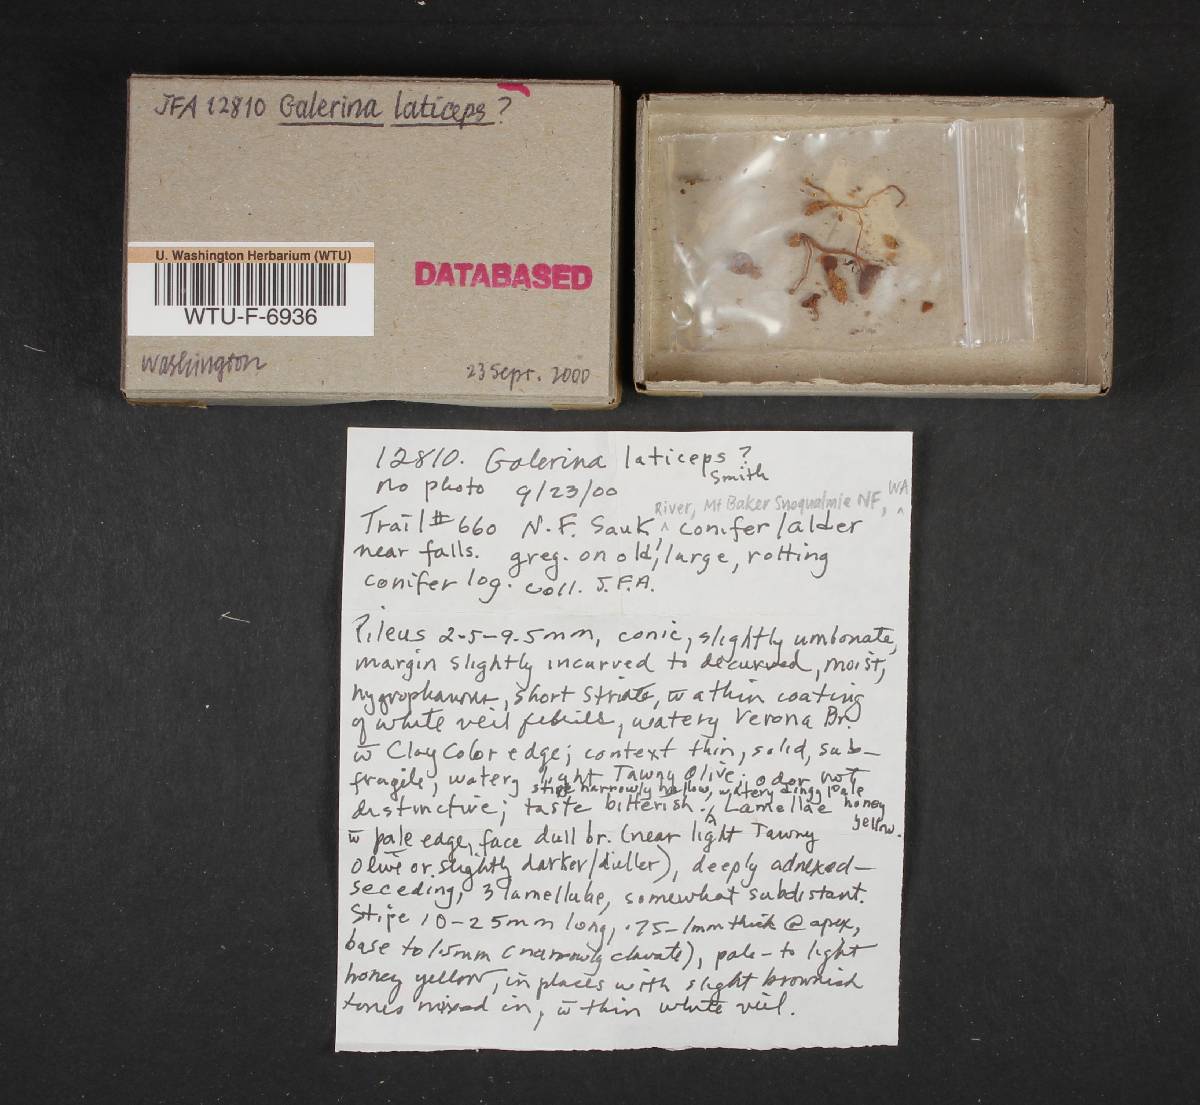 JFA 12810 Galerina laticeps?
U. Washington Herbarium (WTU)
WTU-F-6936
DATABASED
Washington
23 Sept. 2000
12810. Galerina laticeps?
Smith
no photo 9/23/00
River, Mt Baker Snoqualmie NF, WA
Trail #660 N.F. Sauk conifer/alder
near falls. greg. on old, large, rotting
conifer log. coll. J.F.A.
Pileus 2.5-9.5mm, conic, slightly umbonate,
margin slightly incurved to decurved, moist,
hygrophanous, short striate, w̄ a thin coating
of white veil fibrils, watery Verona Br.
w̄ Clay Color edge; context thin, solid, sub-
fragile, watery light Tawny Olive; odor not
stipe narrowly hollow, watery dingy pale honey yellow.
distinctive; taste bitterish. Lamellae
w̄ pale edge, face dull br. (near light Tawny
Olive or slightly darker/duller), deeply adnexed-
seceding, 3 lamellulae, somewhat subdistant.
Stipe 10-25mm long, .75-1mm thick @ apex,
base to 1.5mm (narrowly clavate), pale- to light
honey yellow, in places with slight brownish
tones mixed in, w̄ thin white veil.